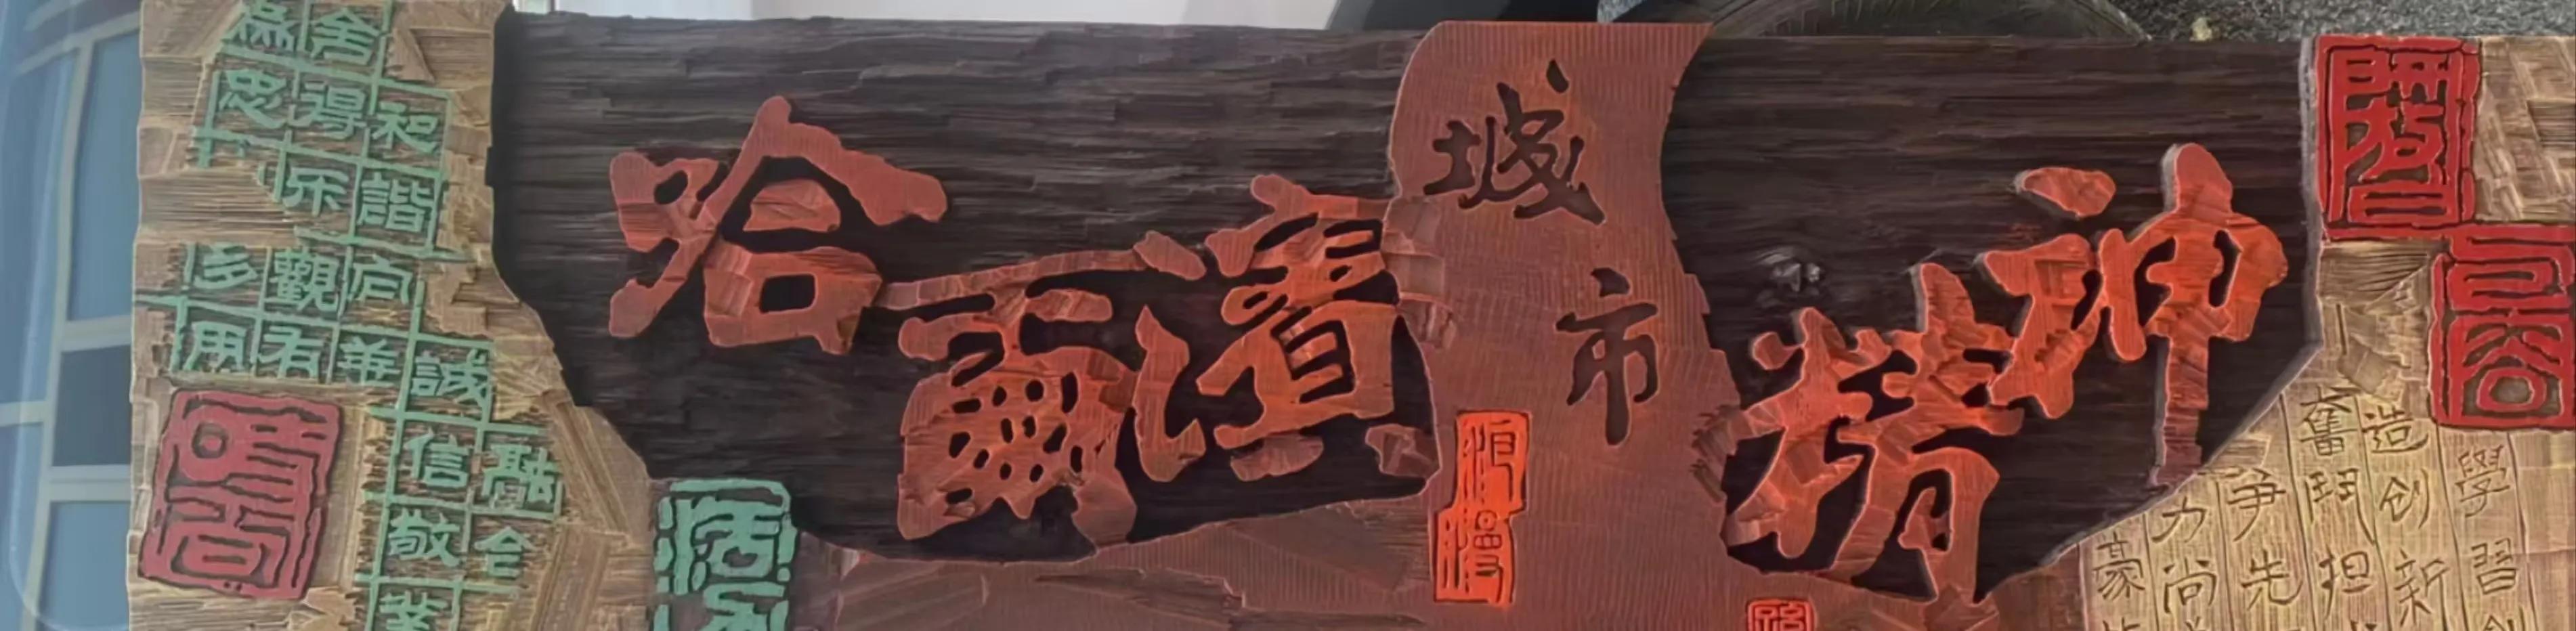 哈爾濱
城市
精神
浪漫
包容
時尚
和諧
舍得乐
忠
向善
觀有
多用
誠信敬業
融合
學習
造创新
奮鬥担
爭先
力尚
豪